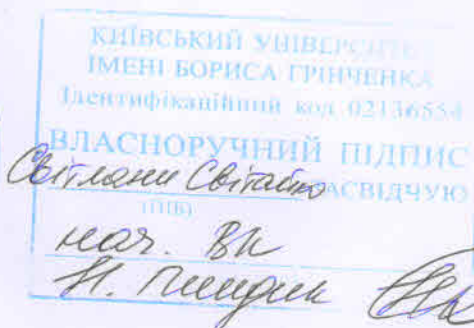 КИЇВСЬКИЙ УНІВЕРСИТЕТ
ІМЕНІ БОРИСА ГРІНЧЕНКА
Ідентифікаційний код 02136554
ВЛАСНОРУЧНИЙ ПІДПИС
Світлани ЗАСВІДЧУЮ
(ПІБ)
нач. ВК
Н.